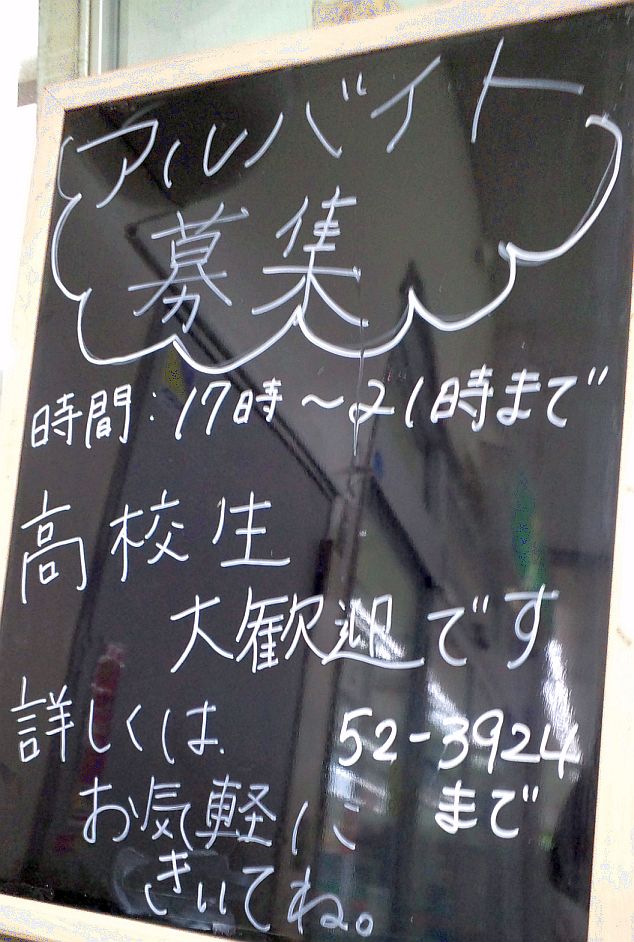 アルバイト
募集
時間:17時～21時まで
高校生
大歓迎です
詳しくは 52-3924
まで
お気軽に
きいてね。